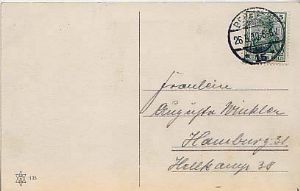 26.5.10
Fräulein
Auguste Winkler
Hamburg 21
Hellkamp 38
135